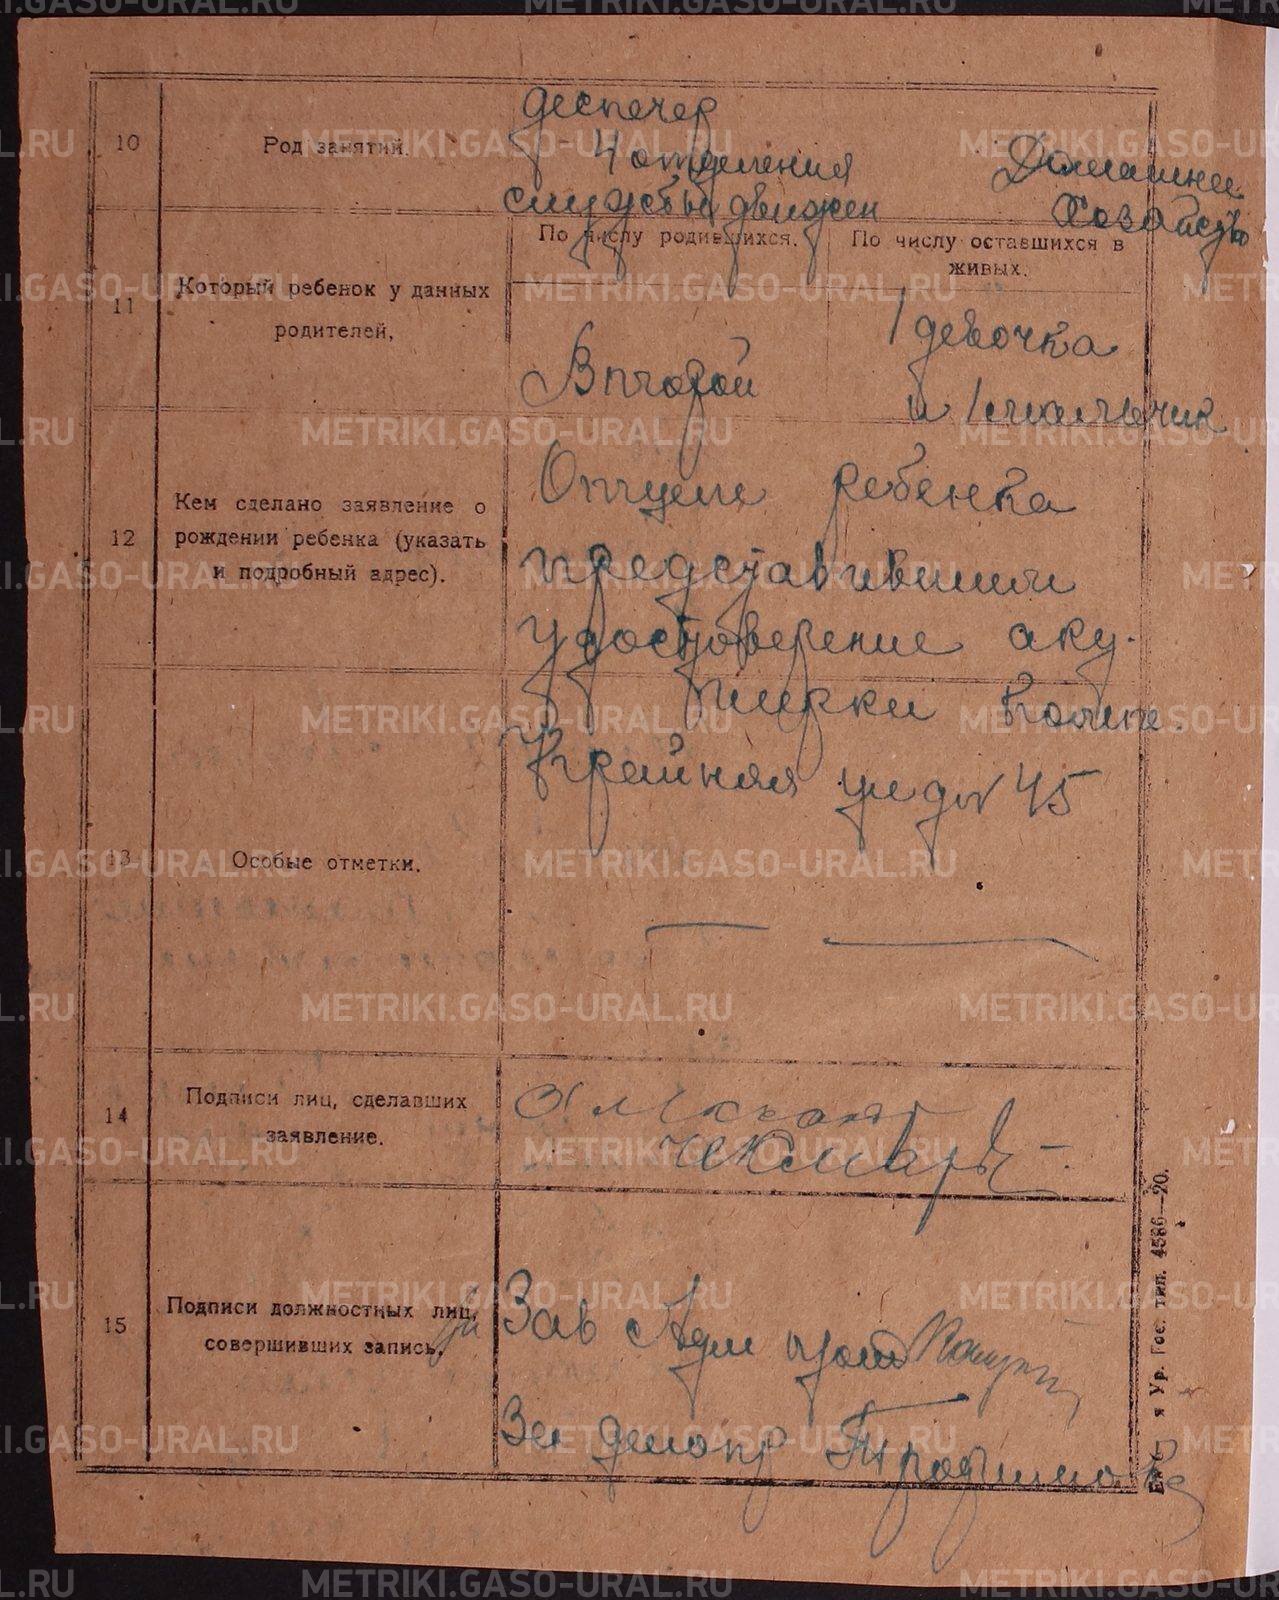 10 Род занятий.
деспечер
4 отделения
службы движен
Домашнее
Хозяйство
11 Который ребенок у данных
родителей,
По числу родившихся.
По числу оставшихся в
живых.
Второй
1 девочка
и 1 мальчик
12 Кем сделано заявление о
рождении ребенка (указать
и подробный адрес).
Отцем ребенка
представивший
удостоверение аку-
шерки
Крайняя ул д № 45
13 Особые отметки.
14 Подписи лиц, сделавших
заявление.
Чекмарь
15 Подписи должностных лиц,
совершивших запись.
Зав Адм
Зав делопр
я Ур. Гос. тип. 4586—20.
METRIKI.GASO-URAL.RU